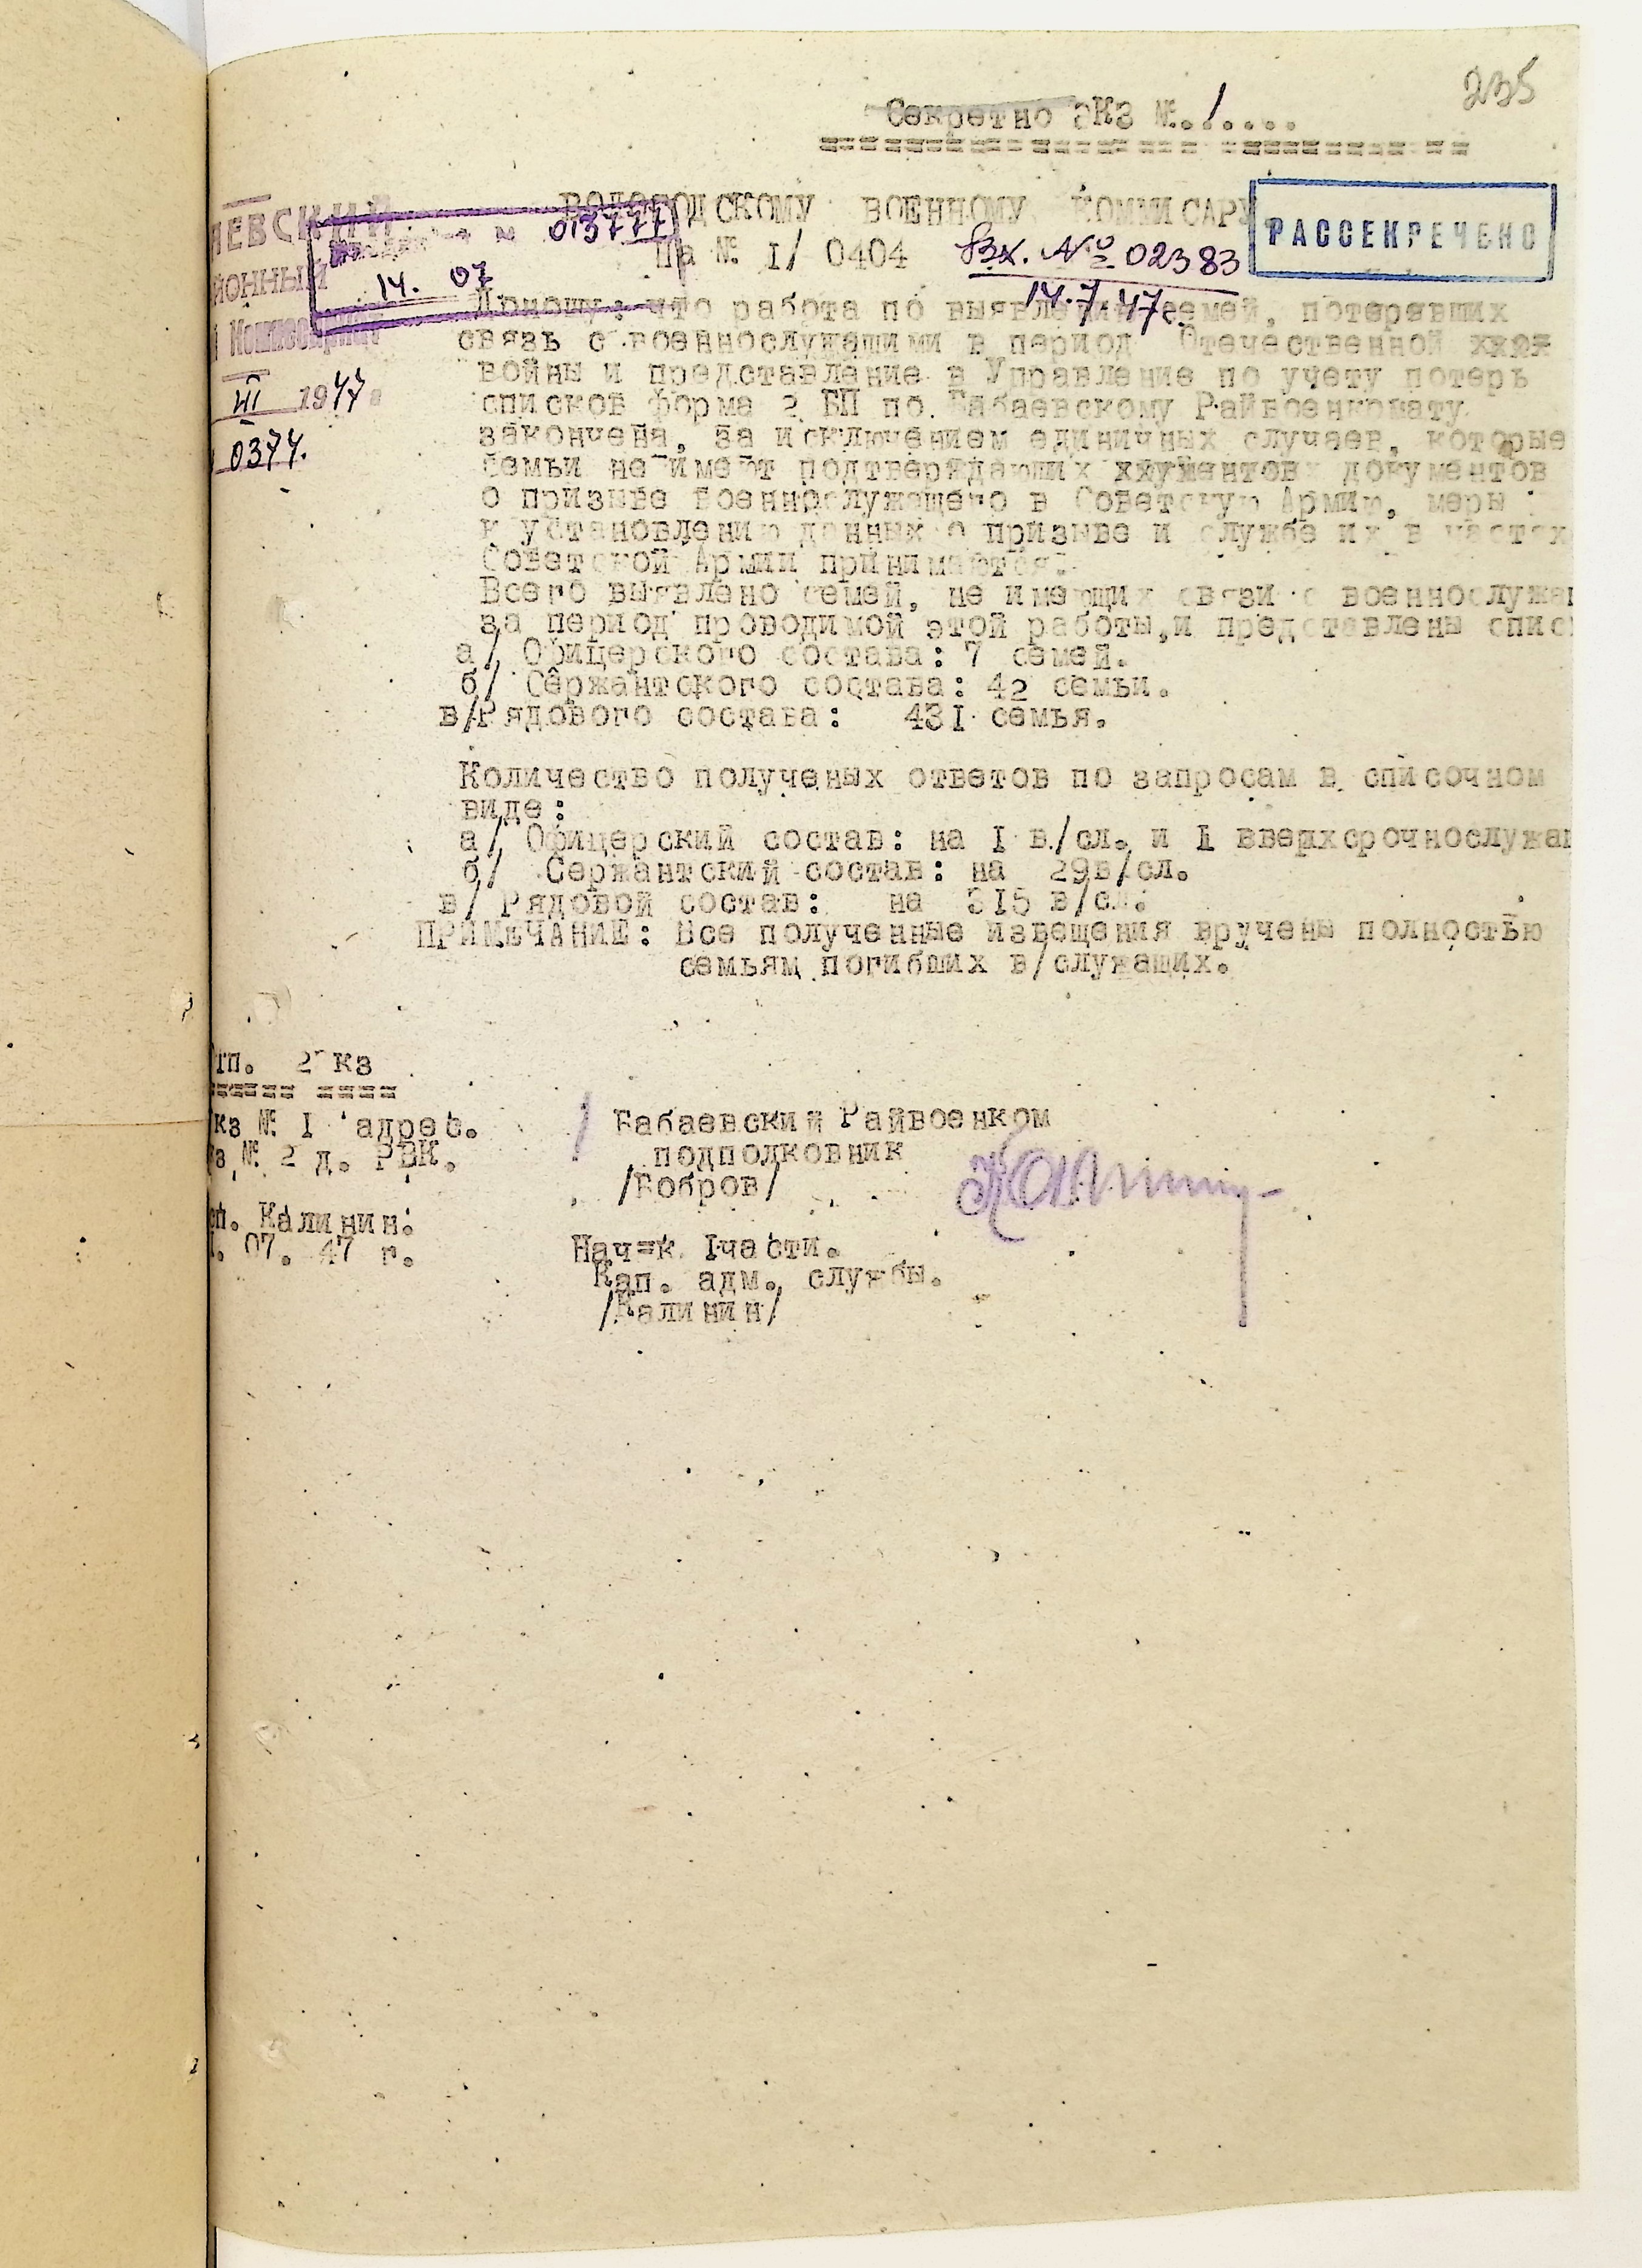 235
Секретно экз №.1....
ВОЛОГОДСКОМУ ВОЕННОМУ КОМИССАРУ
РАССЕКРЕЧЕНО
ЕВСКИЙ
013777
На № I/ 0404
Вх. № 02383
ЙОННЫЙ
14. 07
14.7.47г.
Комиссариат
Доношу: что работа по выявлению семей, потерявших
связь с военнослужащими в период Отечественной
войны и представление в Управление по учету потерь
VII 1947г
списков форма 2 БП по Бабаевскому Райвоенкомату
закончена, за исключением единичных случаев, которые
0374.
семьи не имеют подтверждающих документов
о призыве военнослужащего в Советскую Армию, меры
к установлению данных о призыве и службе их в частях
Советской Армии принимаются.
Всего выявлено семей, не имеющих связи с военнослужа
за период проводимой этой работы,и представлены списк
а/ Офицерского состава: 7 семей.
б/ Сержантского состава: 42 семьи.
в/Рядового состава: 43I семья.
Количество полученых ответов по запросам в списочном
виде:
а/ Офицерский состав: на I в/сл. и I вверхсрочнослужа
б/ Сержантский состав: на 29в/сл.
в/ Рядовой состав: на 315 в/сл.
ПРИМЕЧАНИЕ: Все полученные извещения вручены полностью
семьям погибших в/служащих.
тп. 2 кз
===== ====
кз № I адрес.
з № 2 д. РВК.
Бабаевский Райвоенком
подполковник
/Бобров/
сп. Калинин.
. 07. 47 г.
Нач=к Iчасти.
Кап. адм. службы.
/Калинин/